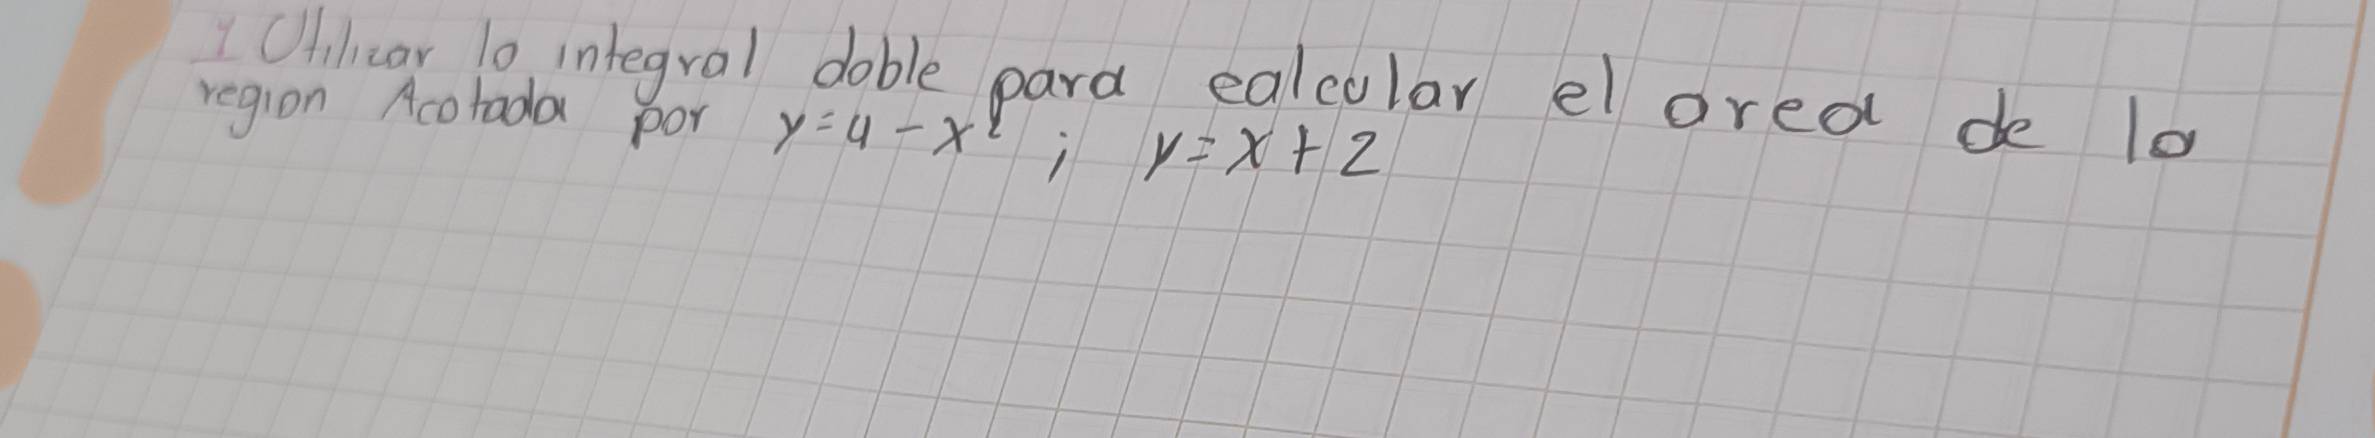 1 Utilizar la integral doble para calcular el area de la
region Acotada por y=4-x² ; y=x+2